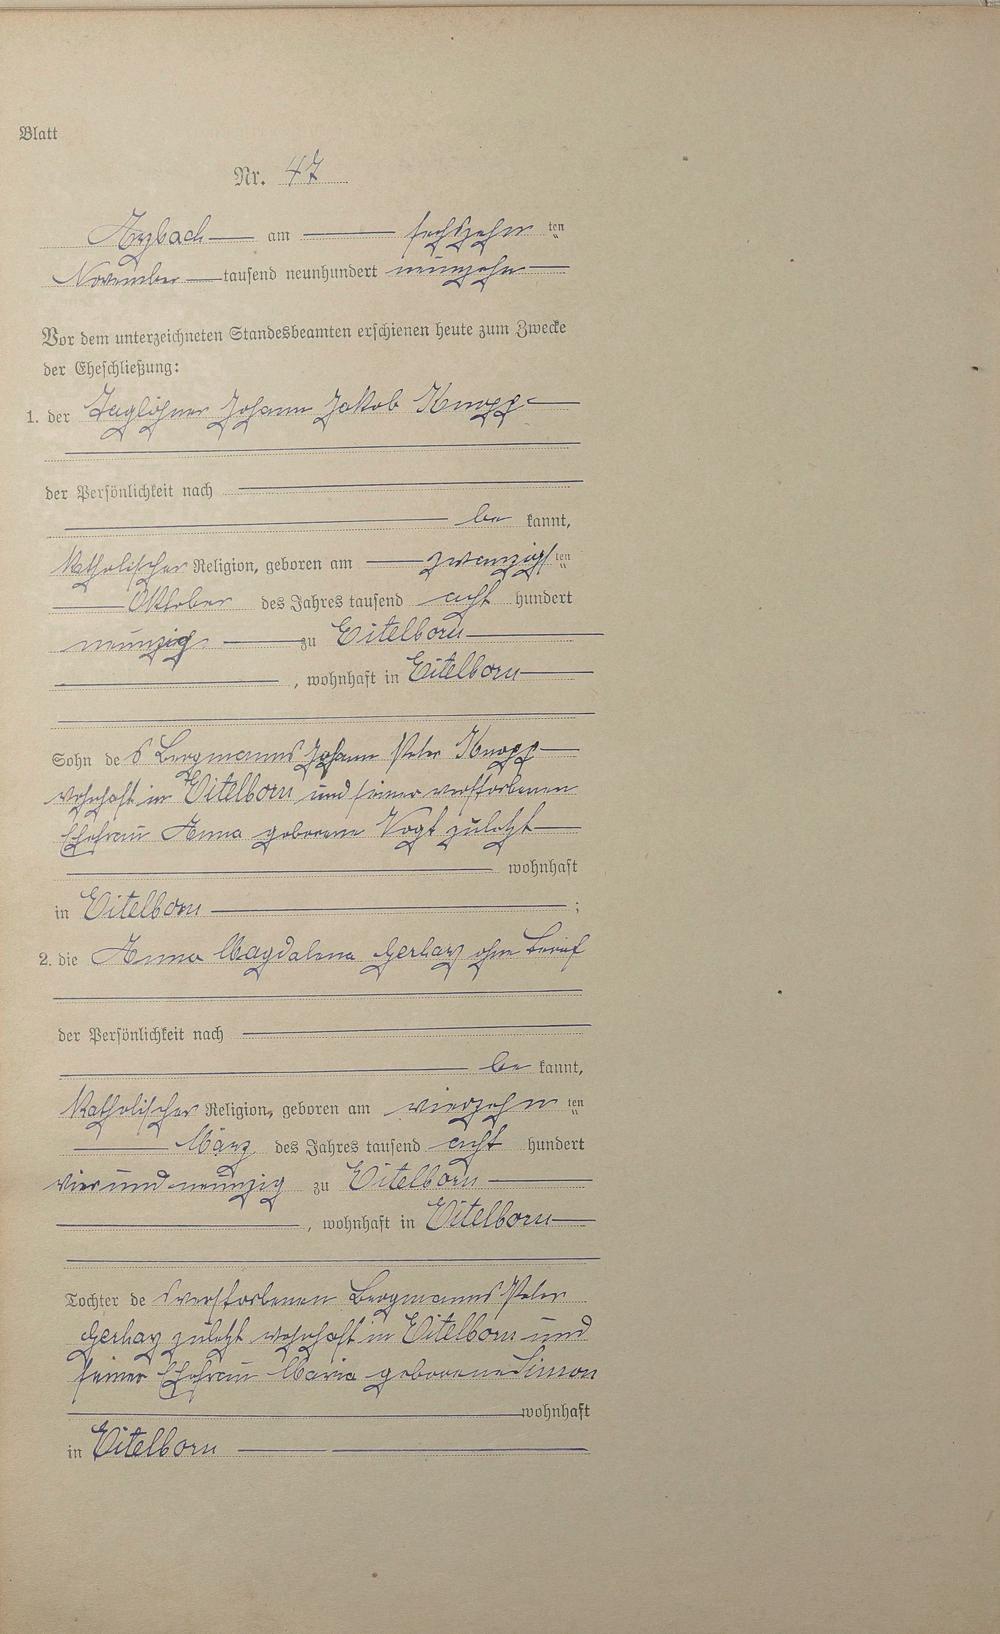 Blatt
Nr. 47
Arzbach am sechszehn ten
November tausend neunhundert neunzehn
Vor dem unterzeichneten Standesbeamten erschienen heute zum Zwecke
der Eheschließung:
1. der Taglöhner Johann Jakob Knopp
der Persönlichkeit nach
be kannt,
katholischer Religion, geboren am zwanzigs ten
Oktober des Jahres tausend acht hundert
neunzig zu Eitelborn
, wohnhaft in Eitelborn
Sohn de s Bergmanns Johann Peter Knopp
wohnhaft in Eitelborn und seiner verstorbenen
Ehefrau Anna geborene Vogt zuletzt
wohnhaft
in Eitelborn ;
2. die Anna Magdalena Gerhaz ohne Beruf
der Persönlichkeit nach
be kannt,
katholischer Religion, geboren am vierzehn ten
März des Jahres tausend acht hundert
vierundneunzig zu Eitelborn
, wohnhaft in Eitelborn
Tochter de s verstorbenen Bergmanns Peter
Gerhaz zuletzt wohnhaft in Eitelborn und
seiner Ehefrau Maria geborene Simon
wohnhaft
in Eitelborn